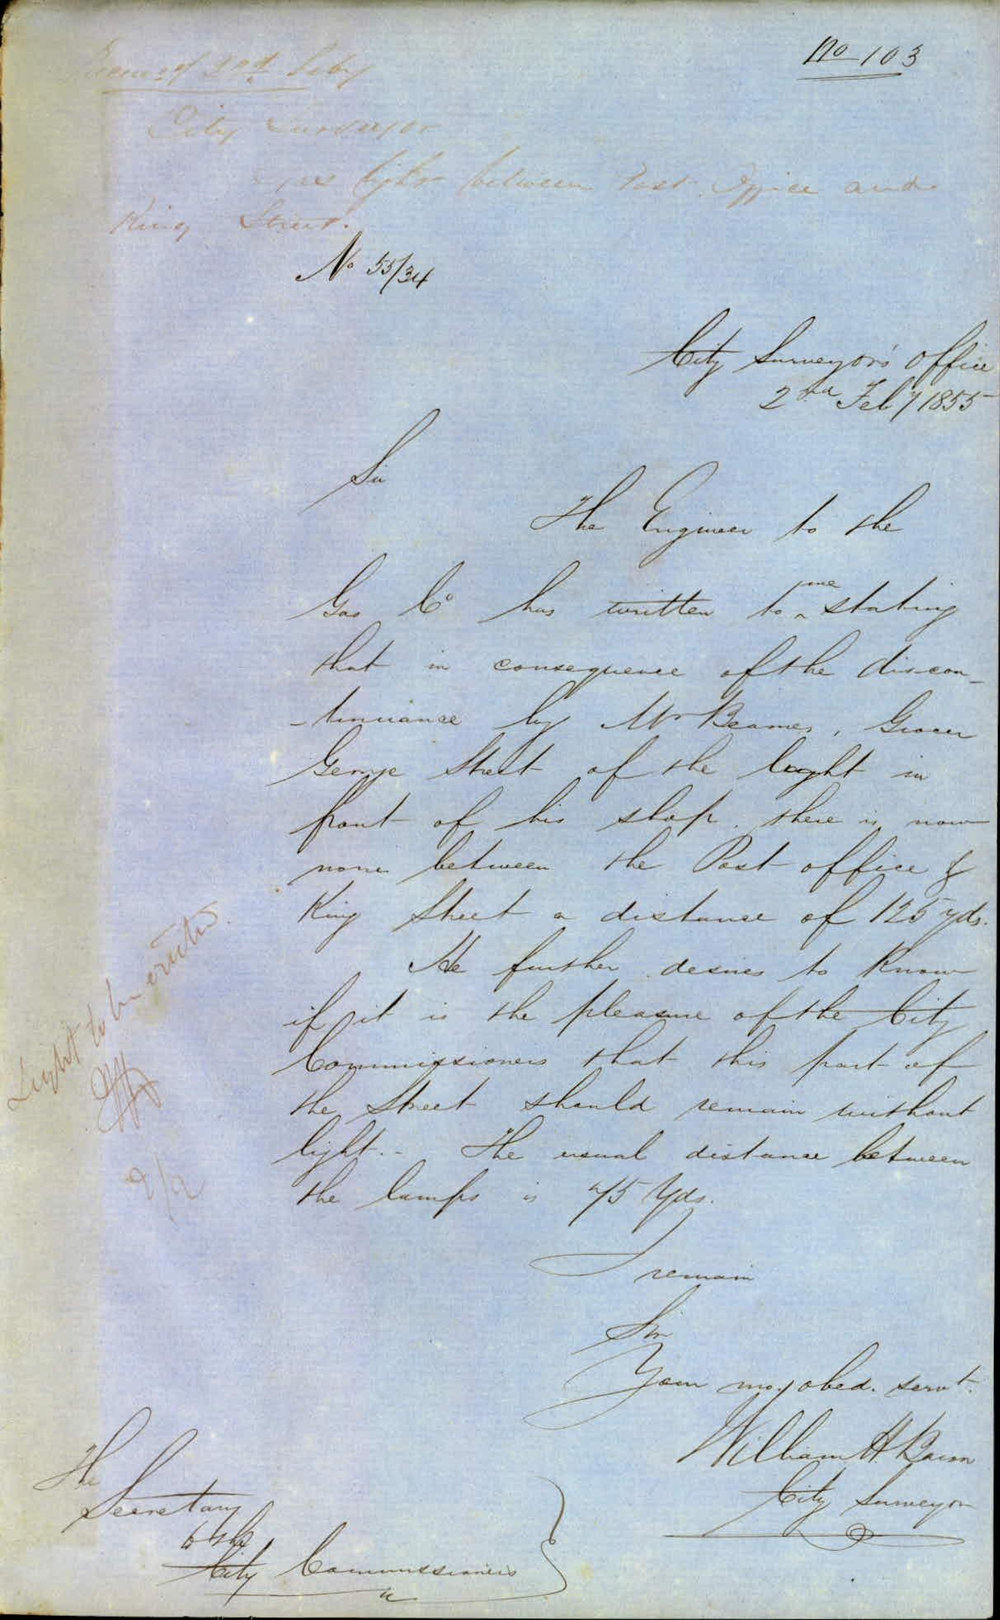 No 103
2nd Feby
City Surveyor
lights between Post Office and
King Street.
No 55/34
City Surveyor's Office
2nd Feby 1855
Sir
The Engineer to the
Gas Co has written to me stating
that in consequence of the discon-
-tinuance by Mr Beames, Grocer
George Street of the light in
front of his shop. there is now
none between the Post office &
King Street a distance of 125 yds.
He further desires to know
if it is the pleasure of the City
Commissioners that this part of
the Street should remain without
light.- The usual distance between
the lamps is 75 Yds.
Light to be
9/2
I remain
Sir
Your mo. obed. servt.
William H
City Surveyor
The
Secretary
to the
City Commissioners